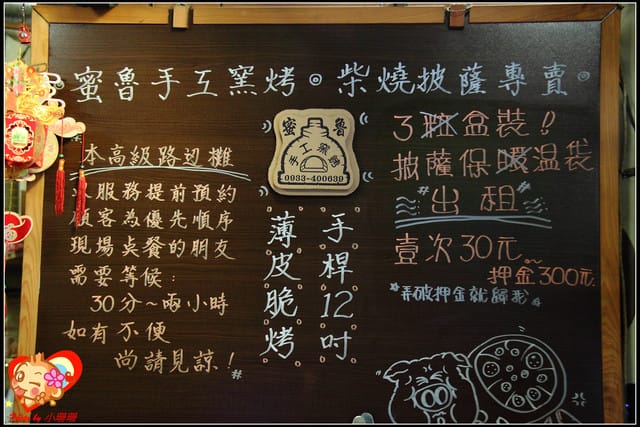 蜜魯手工窯烤。柴燒披薩專賣。
本高級路边攤
以服務提前預約
顧客為優先順序
現場桌餐的朋友
需要等候:
30分~兩小時
如有不便
尚請見諒!
蜜魯
手工窯烤
0933-400639
手桿12吋
薄皮脆烤
3粒盒裝!
披薩保暖溫袋
出租
壹次30元。
押金300元
弄破押金就歸我
Photo by 小珊珊